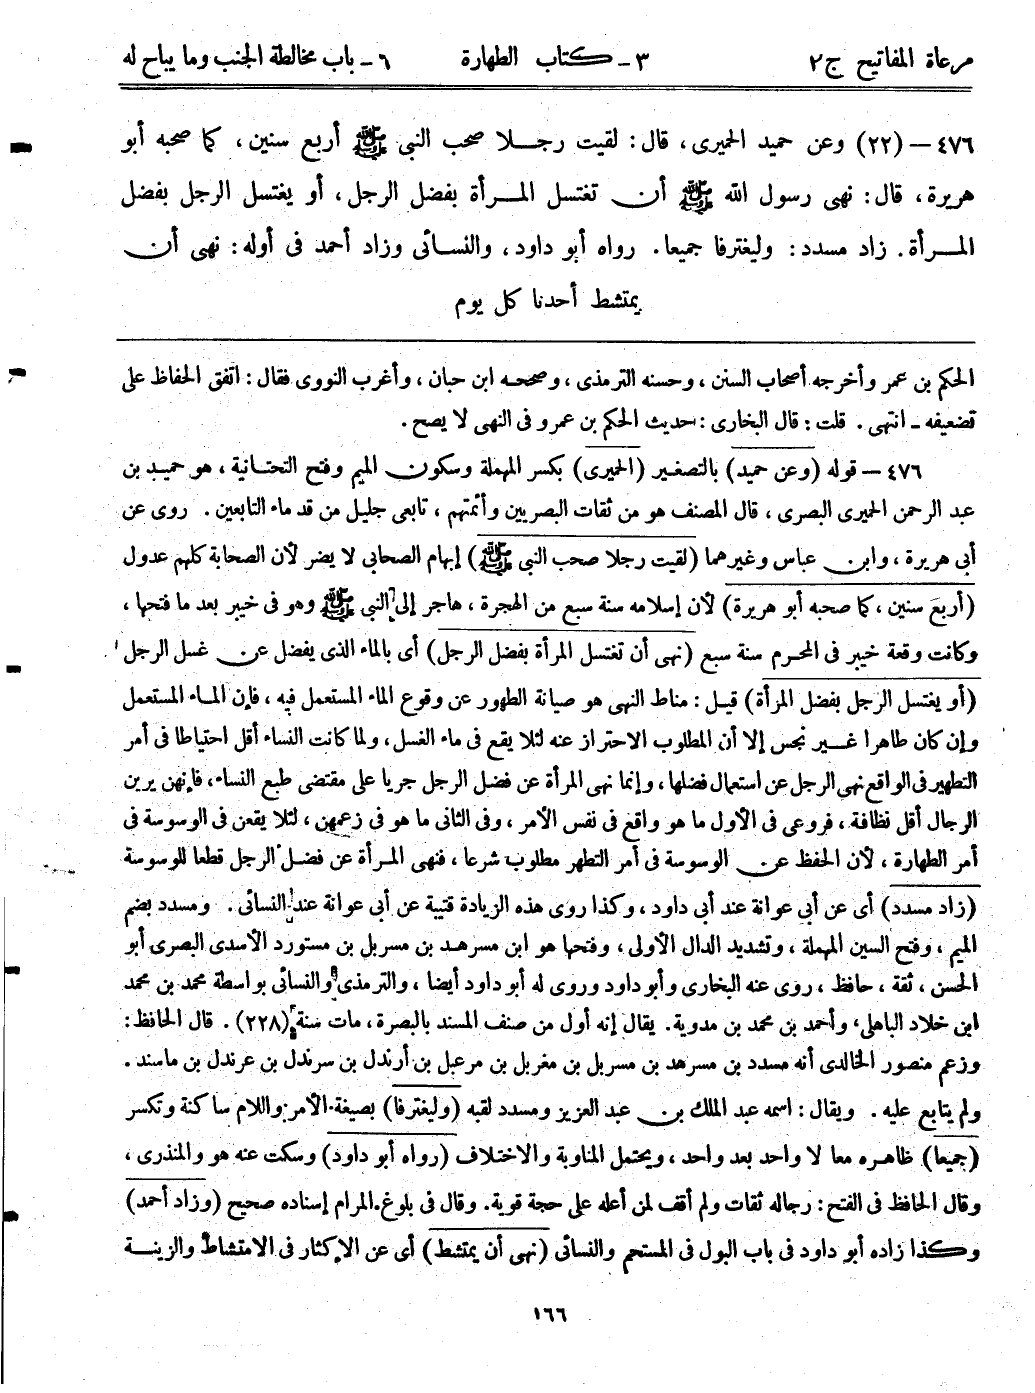 مرعاة المفاتيح ج٢ ٣ـ كتاب الطهارة ٦ـ باب مخالطة الجنب وما يباح له
٤٧٦ – (٢٢) وعن حميد الحميرى، قال: لقيت رجلا صحب النبى ﷺ أربع سنين، كما صحبه أبو
هريرة، قال: نهى رسول الله ﷺ أن تغتسل المرأة بفضل الرجل، أو يغتسل الرجل بفضل
المرأة. زاد مسدد: وليغترفا جميعا. رواه أبو داود، والنسائى وزاد أحمد فى أوله: نهى أن
يمتشط أحدنا كل يوم
الحكم بن عمر وأخرجه أصحاب السنن، وحسنه الترمذى، وصححه ابن حبان، وأغرب النووى فقال: اتفق الحفاظ على
تضعيفه ـ انتهى. قلت: قال البخارى: حديث الحكم بن عمرو فى النهى لا يصح.
٤٧٦ – قوله (وعن حميد) بالتصغير (الحميرى) بكسر المهملة وسكون الميم وفتح التحتانية، هو حميد بن
عبد الرحمن الحميرى البصرى، قال المصنف هو من ثقات البصريين وأئمتهم، تابعى جليل من قدماء التابعين. روى عن
أبى هريرة، وابن عباس وغيرهما (لقيت رجلا صحب النبى ﷺ) إبهام الصحابى لا يضر لأن الصحابة كلهم عدول
(أربع سنين، كما صحبه أبو هريرة) لأن إسلامه سنة سبع من الهجرة، هاجر إلى النبى ﷺ وهو فى خيبر بعد ما فتحها،
وكانت وقعة خيبر فى المحرم سنة سبع (نهى أن تغتسل المرأة بفضل الرجل) أى بالماء الذى يفضل عن غسل الرجل
(أو يغتسل الرجل بفضل المرأة) قيل: مناط النهى هو صيانة الطهور عن وقوع الماء المستعمل فيه، فإن الماء المستعمل
وإن كان طاهرا غير نجس إلا أن المطلوب الاحتراز عنه لئلا يقع فى ماء الغسل، ولما كانت النساء أقل احتياطا فى أمر
التطهير فى الواقع نهى الرجل عن استعمال فضلها، وإنما نهى المرأة عن فضل الرجل جريا على مقتضى طبع النساء، فإنهن يرين
الرجال أقل نظافة، فروعى فى الأول ما هو واقع فى نفس الأمر، وفى الثانى ما هو فى زعمهن، لئلا يقعن فى الوسوسة فى
أمر الطهارة، لأن الحفظ عن الوسوسة فى أمر التطهر مطلوب شرعا، فنهى المرأة عن فضل الرجل قطعا للوسوسة
(زاد مسدد) أى عن أبى عوانة عند أبى داود، وكذا روى هذه الزيادة قتيبة عن أبى عوانة عند النسائى. ومسدد بضم
الميم، وفتح السين المهملة، وتشديد الدال الأولى، وفتحها هو ابن مسرهد بن مسربل بن مستورد الأسدى البصرى أبو
الحسن، ثقة، حافظ، روى عنه البخارى وأبو داود وروى له أبو داود أيضا، والترمذى والنسائى بواسطة محمد بن محمد
ابن خلاد الباهلى، وأحمد بن محمد بن مدوية. يقال إنه أول من صنف المسند بالبصرة، مات سنة (٢٢٨). قال الحافظ:
وزعم منصور الخالدى أنه مسدد بن مسرهد بن مسربل بن مغربل بن مرعبل بن أرندل بن سرندل بن عرندل بن ماسند.
ولم يتابع عليه. ويقال: اسمه عبد الملك بن عبد العزيز ومسدد لقبه (وليغترفا) بصيغة الأمر واللام ساكنة وتكسر
(جميعا) ظاهره معا لا واحد بعد واحد، ويحتمل المناوبة والاختلاف (رواه أبو داود) وسكت عنه هو والمنذرى،
وقال الحافظ فى الفتح: رجاله ثقات ولم أقف لمن أعله على حجة قوية. وقال فى بلوغ المرام إسناده صحيح (وزاد أحمد)
وكذا زاده أبو داود فى باب البول فى المستحم والنسائى (نهى أن يمتشط) أى عن الإكثار فى الامتشاط والزينة
١٦٦